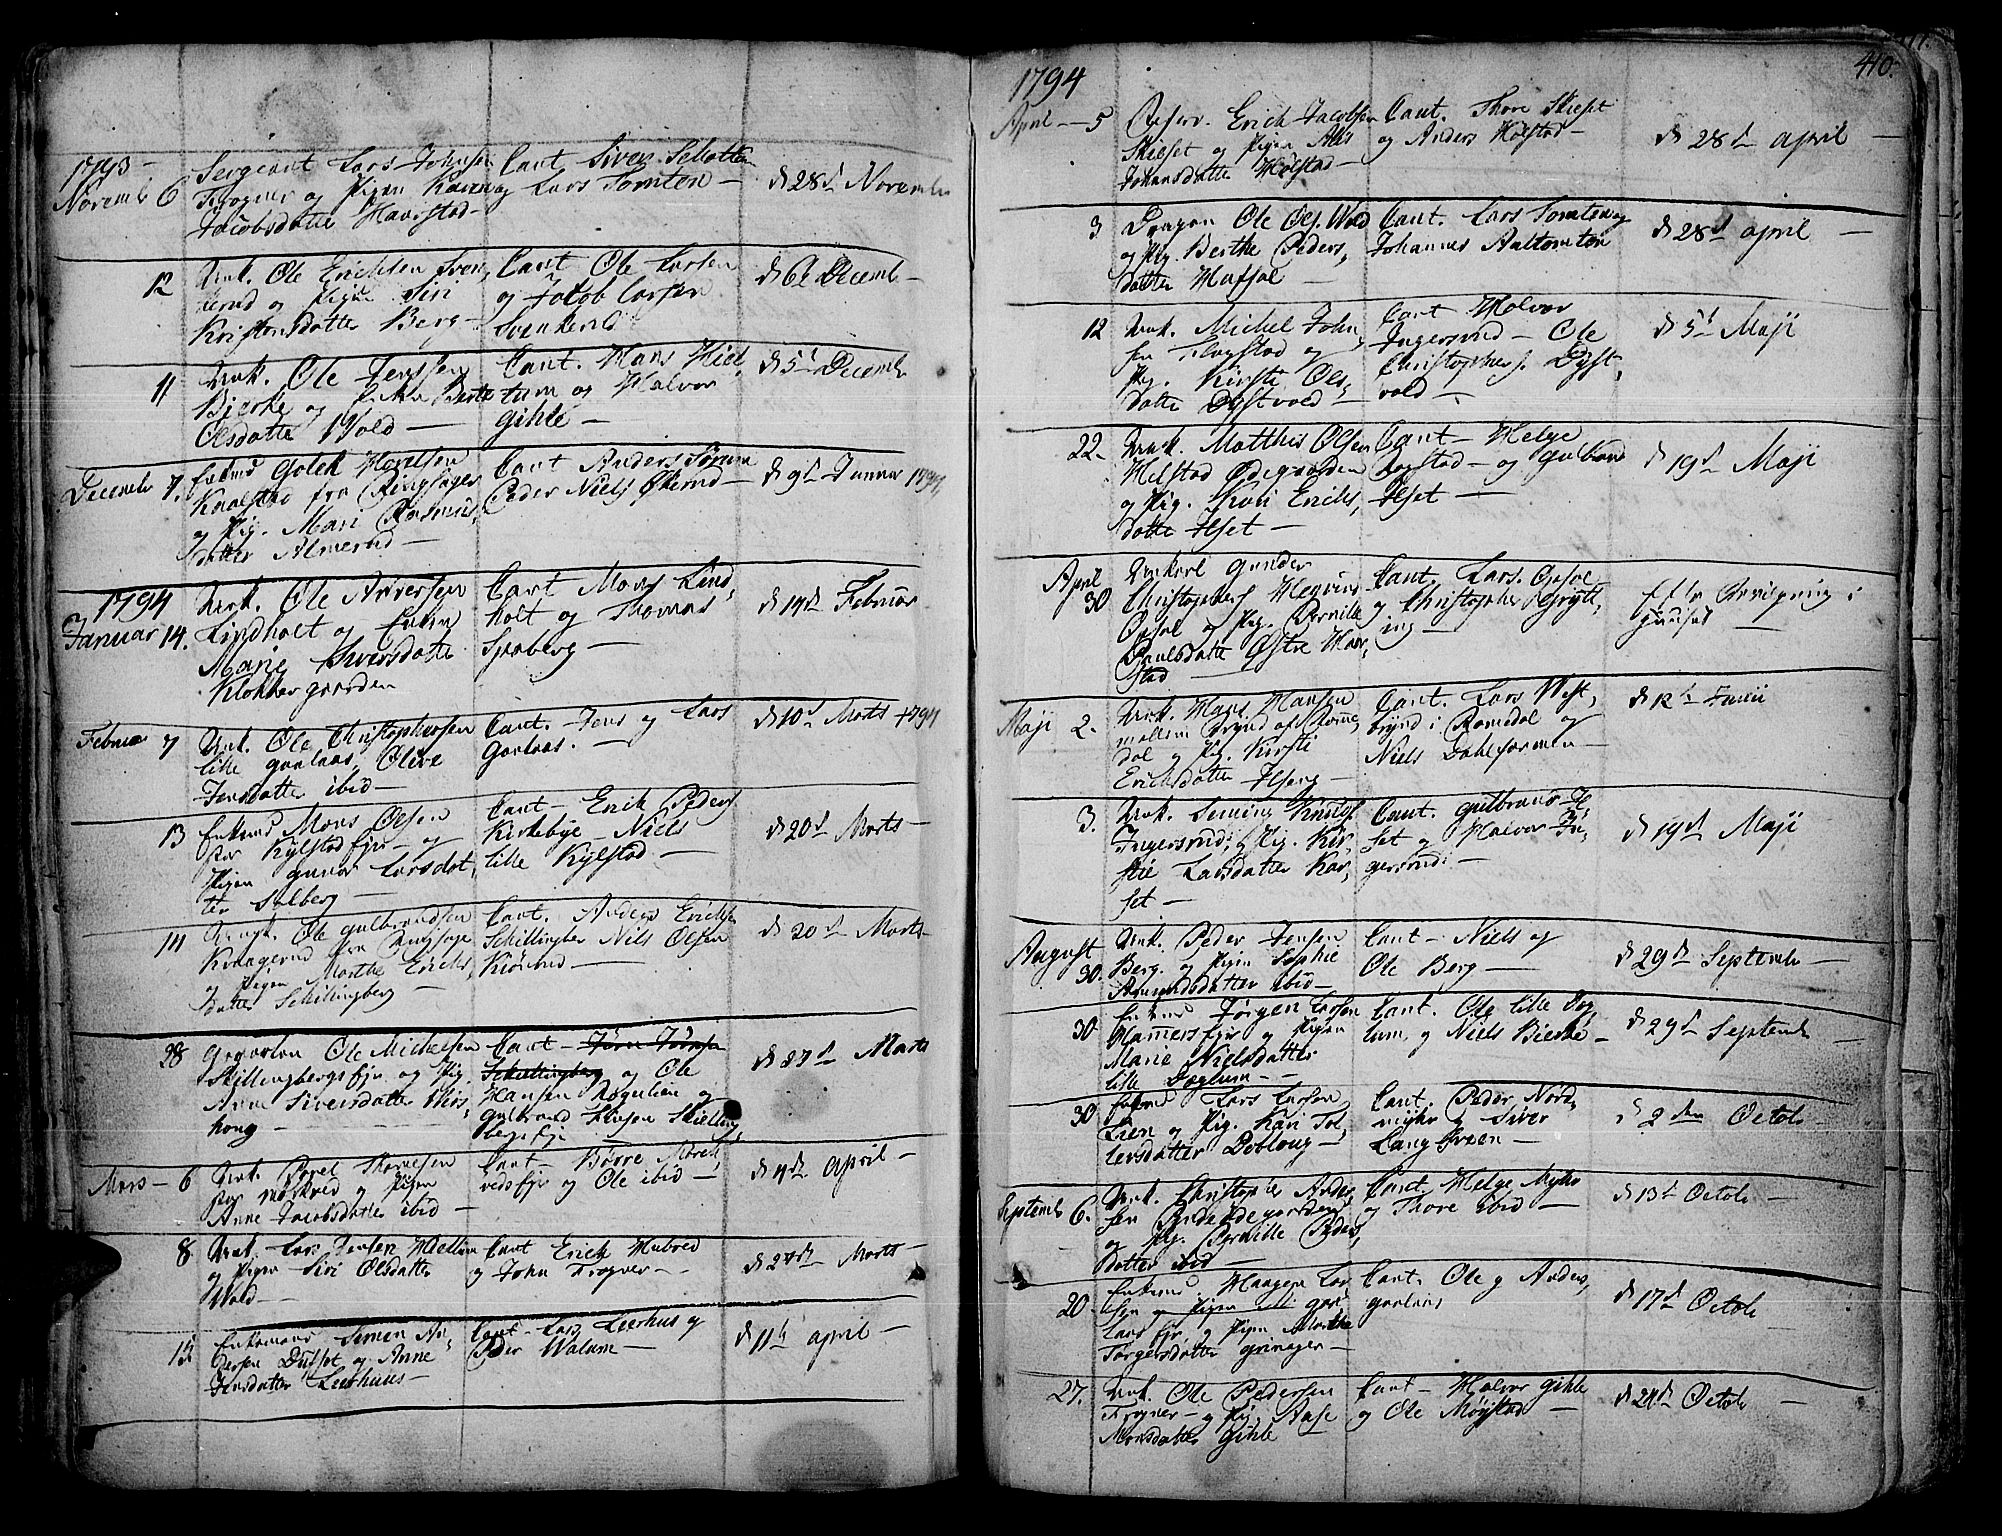 1793 -
Novemb 6
Sergeant Lars Johnsen
Frogner og Pigen Karen
Jacobsdatter Haarstad -
Caut Siver Schatten
og Lars Tomten -
d 28d Novemb
12
Unk. Ole Erichsen Sven,
kerud og Pigen Siri
Kristensdatter Berg -
Caut Ole Larsen
og Jacob Larsen
Svenkerud
d 6t Decemb -
11
Unk. Ole Jenssen
Bjerke og Berte
Olsdatter Wold -
Caut. Hans Hiel,
lum og Halvor
gihle -
d 5t Decemb
Decemb 7.
Enkmd
fra Ringsager
og Pig. Mari Rasmus,
datter Almerud -
Caut Anders
Peder Niels Økerud -
d 9d Januar 1794
1794
Januar 14.
Unk. Ole Andersen
Lindholt og
Marie Siversdatter
Klokkergaarden
Caut Mons Lind,
holt og Thomas
Spaberg -
d 14d Februar
Februar 7
Unk. Ole Christophersen
lille gaalaas, Olive
Jensdatter ibid -
Caut. Jens og Lars
Gaalaas. -
d 10d Marts 1794
13
Enkmd Mons Olsen
Kylstad ejr - og
Pigen gunor Larsdat,
ter Solberg -
Caut - Erich Peders
Kirkebye - Niels
lille Kylstad -
d 20d Marts -
14
Ungk. Ole gulbrandsen
Kraagerud fra Ringsage
og Pigen Marthe Erichs,
datter Schillingberg -
Caut. Anders Erichsen
Schillingber Niels Olsen
Kiörud -
d 20d Marts -
28
Ole Michelsen
Skillingbergsejr og Pig.
Anne Siversdatter This,
hong -
Caut - Jörn Jörnsen
Schillingberg og Ole
Hansen Rognlien og
gulbrand Skilling,
bergsejr
d 27d Marts
Mars - 6
Unk. Povel
Mörkved og Pigen
Anne Jacobsdatter ibid -
Caut - Börre Mörck
vedsejr og Ole ibid -
d 4de April -
8
Unk. Lars Jensen Hiellum
og Pigen Siri Olsdatter
Wold -
Caut Erich Hubred
og John Frogner -
d 27d Marts -
15
Enkemand Simen An,
dersen Dulset og Anne
Jensdatter Leerhuus -
Caut - Lars Leerhus og
Peder Walum -
d 11t April -
410.
1794
April - 5
Reserv. Erich Jacobsen
Skieset og Pigen Alis
Johansdatter Holstad -
Caut. Thore Skieset
og Anders Holstad -
d 28d April -
3
Dragon Ole Ols. Wold
og Pig. Berthe Peders,
datter Hafsal -
Caut. Lars Tomten og
Johannes Aaltomten
d 28d April -
12
Unk. Michel John
sen Flagstad og
Pig. Kirsti Ols,
datter Dystvold -
Caut Halvor
Ingersrud - Ole
Christophers. Dyst,
vold -
d 5t Maji
22.
Unk. Matthis Olsen
Helstad Ødegaarden
og Pig. Kari Erichs,
datter Ilset -
Caut - Helge
Rogstad - og gulbrand
Ilset -
d 19d Maji
April
30
Unkarl gunder
Christophers Hegvins
Opsal og Pig. Pernille
Paulsdatter Østre Haar,
stad -
Caut. Lars. Opsal
og Christopher Grytt,
ing -
Efter Bevilgning i
Huuset -
Maji 2.
Unk. Hans Hansen
mellem Brynd af Rome,
dal og Pig. Kirsti
Erichsdatter Ilseng -
Caut. Lars West,
brynd i Romedal og
Niels Dahlfarmen -
d 12t Junii
3.
Unk. Simen Knuds
Ingersrud; og Pig. Kir,
stie Larsdatter Kar,
set -
Caut. gulbrand Il,
set og Halvor In,
gersrud -
d 19d Maji
August
30.
Unk. Peder Jensen
Berg. og Pigen Sophie
Amundsdatter ibid -
Caut - Niels og
Ole Berg -
d 29d Septemb -
30
Enkmd Jörgen Larsen
Hammersejr og Pigen
Marie Nielsdatter
lille Doglum -
Caut. Ole lille Dog,
lum, og Niels Bierke -
d 29d Septemb
30
Enkmd Lars Larsen
Lien og Pig. Kari Tol,
lersdatter Deblong -
Caut. Peder Nord,
myhr og Siver
Lang Green -
d 2den Octob -
Septemb 6.
Unk. Christopher Ander,
sen Ødegaarden
og Pig. Pernille Peders,
datter ibid -
Caut Helge Myhr
og Thore ibid -
d 13d Octob -
20
Enkmd. Haagen Lar,
sen og Pigen gaa,
laas ejr, og Pigen Marthe
Torgersdatter grinager -
Caut. Ole og Anders,
gaalaas
d 17d Octob
27.
Unk. Ole Pedersen
Frogner - og Pig. Aase
Monsdatter Gihle -
Caut - Halvor gihle
og Ole Møystad -
d 24d Octob -